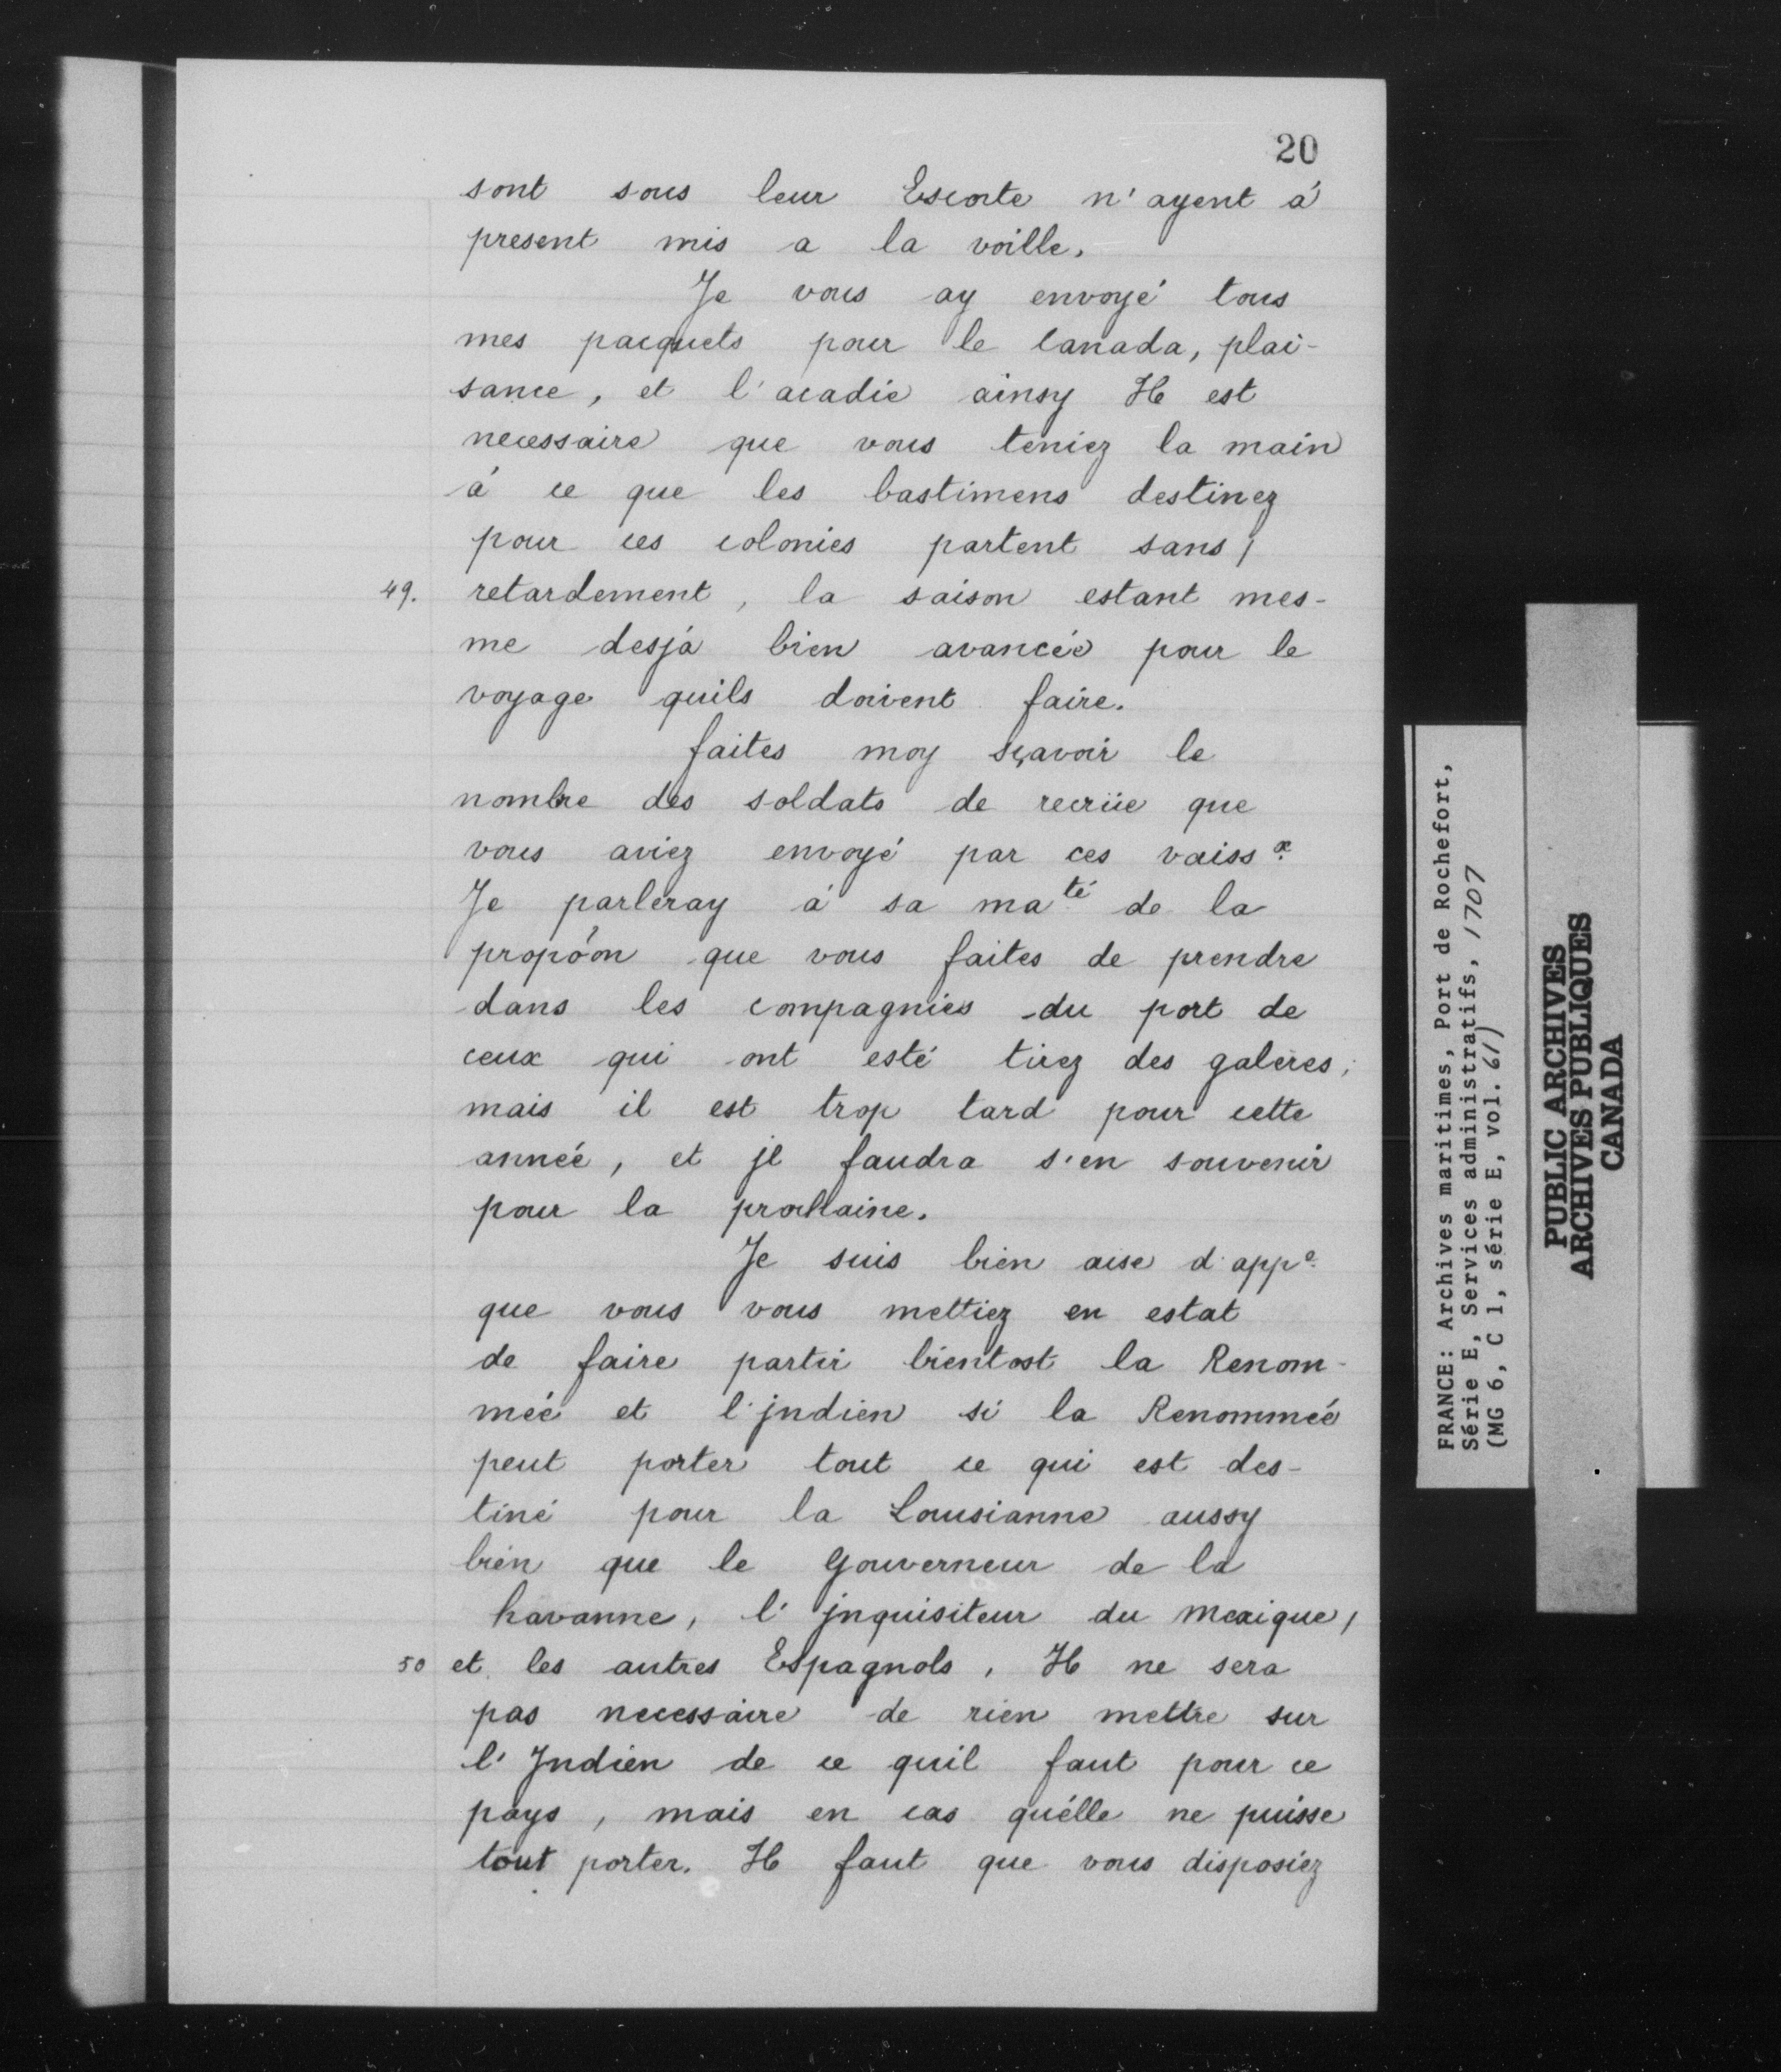 20
sont sous leur Escorte n'ayent à
present mis a la voille.
Je vous ay envoyé tous
mes pacquets pour le Canada, plai-
sance, et l'acadie ainsy Il est
necessaire que vous teniez la main
à ce que les bastimens destinez
pour ces colonies partent sans /
49. retardement, la saison estant mes-
me desjà bien avancée pour le
voyage quils doivent faire.
faites moy sçavoir le
nombre des soldats de recrüe que
vous aviez envoyé par ces vaissx.
Je parleray à sa maté de la
propóon que vous faites de prendre
dans les compagnies du port de
ceux qui ont esté tirez des galeres;
mais il est trop tard pour cette
année, et jl faudra s'en souvenir
pour la prochaine.
Je suis bien aise d'appe.
que vous vous mettiez en estat
de faire partir bientost la Renom-
mée et l'jndien si la Renommée
peut porter tout ce qui est des-
tiné pour la Lousianne aussy
bien que le Gouverneur de la
havanne, l'jnquisiteur du mexique /
50 et les autres Espagnols, Il ne sera
pas necessaire de rien mettre sur
l'Jndien de ce quil faut pour ce
pays, mais en cas qu'élle ne puisse
tout porter. Il faut que vous disposiez
FRANCE: Archives maritimes, Port de Rochefort,
Série E, Services administratifs, 1707
(MG 6, C 1, série E, vol. 61)
PUBLIC ARCHIVES
ARCHIVES PUBLIQUES
CANADA